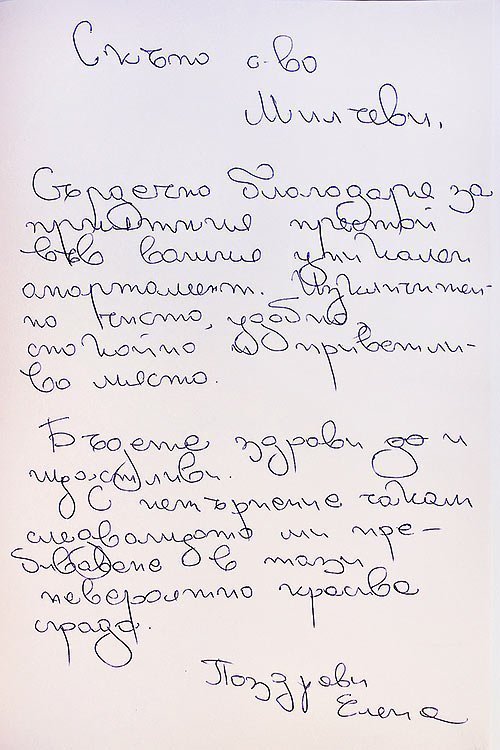 Скъпо с-во
Милчеви,
Сърдечно благодаря за
приятния престой
във вашия уникален
апартамент. Изключител-
но чисто, удобно,
спокойно и приветли-
во място.
Бъдете здрави до и
щастливи.
С нетърпение чакам
следващото ми пре-
биваване в тази
невероятно красива
сграда.
Поздрави
Елена